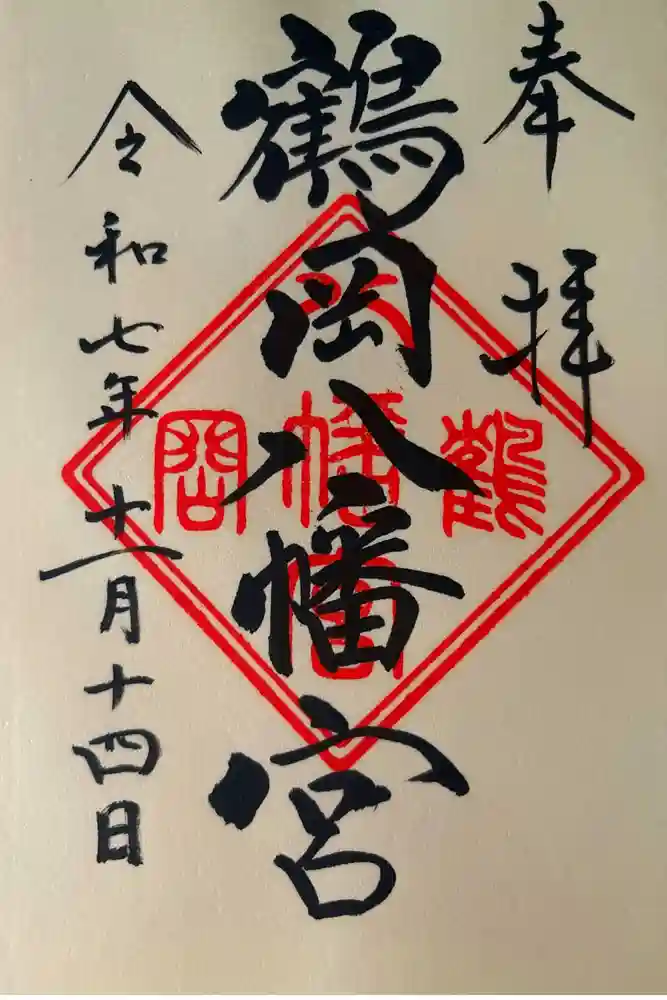 奉拝
鶴岡八幡宮
令和七年十一月十四日
鶴
八幡宮
岡